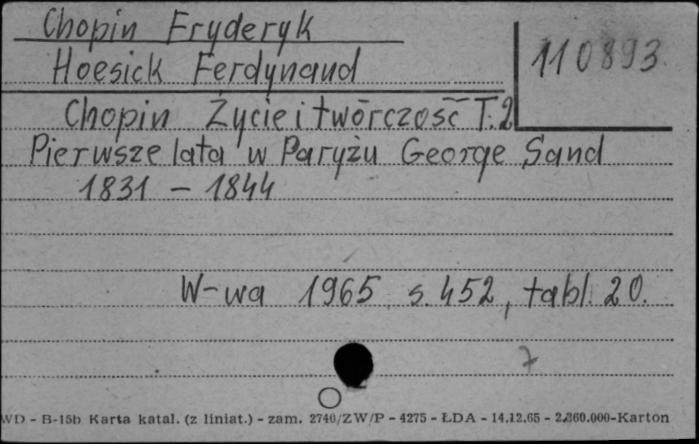 Chopin Fryderyk
110893
Hoesick Ferdynand
Chopin Życie i twórczość T. 2
Pierwsze lata w Paryżu George Sand
1831 – 1844
W-wa 1965 s. 452, tabl. 20.
7
WD - B-15b Karta katal. (z liniat.) - zam. 2740/ZW/P - 4275 - ŁDA - 14.12.65 - 2.360.000-Karton